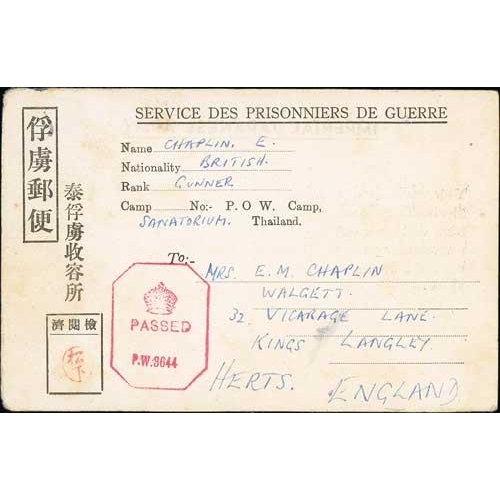 SERVICE DES PRISONNIERS DE GUERRE
俘虜郵便
泰俘虜收容所
檢閱濟
松下
Name CHAPLIN. E.
Nationality BRITISH.
Rank GUNNER
Camp No:- P.O.W. Camp,
SANATORIUM. Thailand.
To:-
MRS. E. M. CHAPLIN
WALGETT.
32, VICARAGE LANE.
KINGS LANGLEY
HERTS. ENGLAND
PASSED
P.W.3644